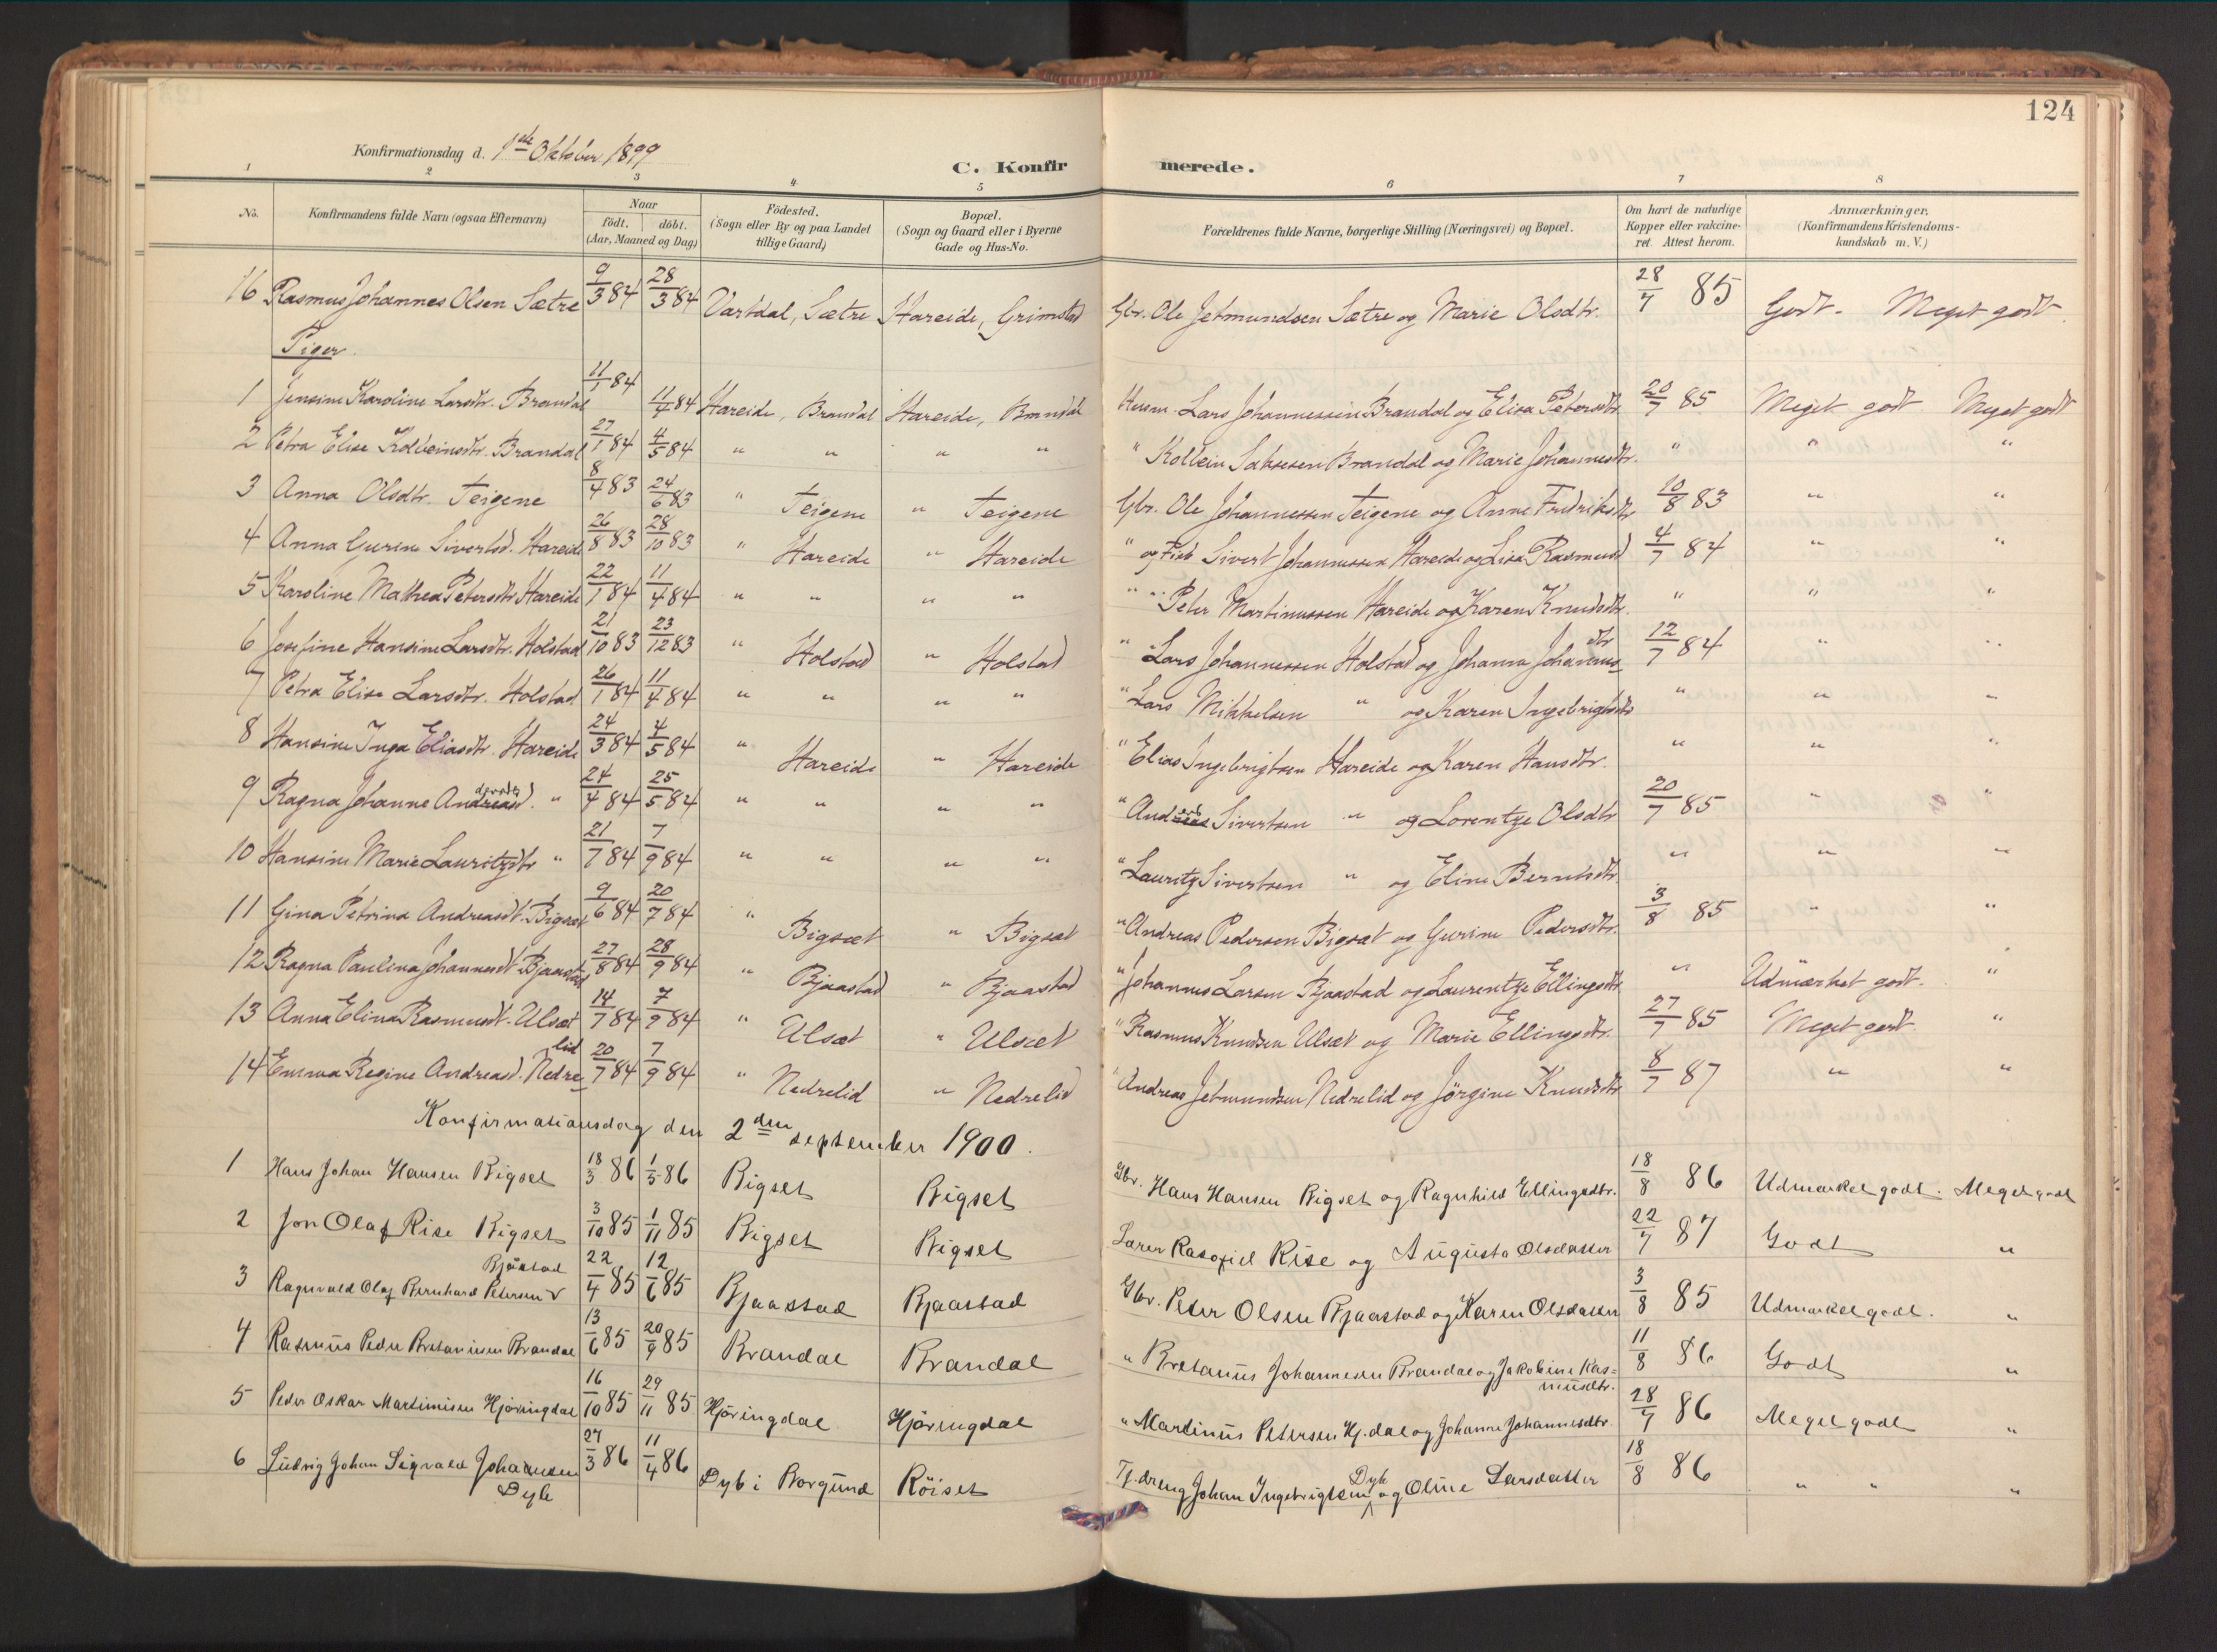 124
Konfirmationsdag d. 1ste Oktober 1899
C. Konfirmerede.
1 2 3 4 5 6 7 8
No. Konfirmandens fulde Navn (ogsaa Efternavn) Naar födt. döbt. (Aar, Maaned og Dag) Födested. (Sogn eller By og paa Landet tillige Gaard) Bopæl. (Sogn og Gaard eller i Byerne Gade og Hus-No. Forældrenes fulde Navne, borgerlige Stilling (Næringsvei) og Bopæl. Om havt de naturlige Kopper eller vakcineret. Attest herom. Anmærkninger. (Konfirmandens Kristendomskundskab m. V.)
16 Rasmus Johannes Olsen Sætre 9/3 84 28/3 84 Vartdal, Sætre Hareide, Grimstad Gbr. Ole Jetmundsen Sætre og Marie Olsdtr. 28/7 85 Godt. Meget godt.
Piger.
1 Jensine Karoline Larsdtr. Brandal 11/1 84 11/4 84 Hareide, Brandal Hareide, Brandal Husm. Lars Johannessen Brandal og Elisa Petersdtr. 20/7 85 Meget godt Meget godt
2 Petra Elise Kolbeinsdtr. Brandal 27/1 84 4/5 84 " " " " " Kolbein Saksesen Brandal og Marie Johannesdtr. " " "
3 Anna Olsdtr. Teigene 8/4 83 24/6 83 " Teigene " Teigene Gbr. Ole Johannessen Teigene og Anne Fredriksdtr 10/8 83 " "
4 Anna Gurine Sivertsd. Hareide 26/8 83 28/10 83 " Hareide " Hareide " og Fisk Sivert Johannessen Hareide og Lisa Rasmusd 4/7 84 " "
5 Karoline Mathea Petersdtr. Hareide 22/1 84 11/4 84 " " " " " " Peter Martinussen Hareide og Karen Knudsdtr. " " "
6 Josefine Hansine Larsdtr. Holstad 21/10 83 23/12 83 " Holstad " Holstad " Lars Johannessen Holstad og Johanna Johannesdtr 12/7 84 " "
7 Petra Elise Larsdtr. Holstad 26/1 84 11/4 84 " " " " " Lars Mikkelsen " og Karen Ingebrigtsdtr " " "
8 Hansine Inga Eliasdtr. Hareide 24/3 84 4/5 84 " Hareide " Hareide " Elias Ingebrigtsen Hareide og Karen Hansdtr. " " "
9 Ragna Johanne Andreasd. " 24/4 84 25/5 84 " " " " " Andreas Sivertsen " og Lorentze Olsdtr 20/7 85 " "
10 Hansine Marie Lauritzdtr " 21/7 84 7/9 84 " " " " " Lauritz Sivertsen " og Eline Berntsdtr. " " "
11 Gina Petrina Andreasdt. Bigsæt 9/6 84 20/7 84 " Bigsæt " Bigsæt " Andreas Pedersen Bigsæt og Gurine Pedersdtr. 3/8 85 " "
12 Ragna Paulina Johannesdt. Bjaastad 27/8 84 28/9 84 " Bjaastad " Bjaastad " Johannes Larsen Bjaastad og Laurentze Ellingsdtr " Udmærket godt. "
13 Anna Elina Rasmusdt. Ulsæt 14/7 84 7/9 84 " Ulsæt " Ulsæt " Rasmus Knudsen Ulsæt og Marie Ellingsdtr. 27/7 85 Meget godt "
14 Emma Regine Andreasd. Nedrelid 20/7 84 7/9 84 " Nedrelid " Nedrelid " Andreas Jetmundsen Nedrelid og Jörgine Knudsdtr 8/7 87 " "
Konfirmationsdag den 2den september 1900.
1 Hans Johan Hansen Bigset 18/3 86 1/5 86 Bigset Bigset Gbr. Hans Hansen Bigset og Ragnhild Ellingsdtr. 18/8 86 Udmærket godt. Meget godt
2 Jon Olaf Rise Bigset 3/10 85 1/11 85 Bigset Bigset Lærer Rise og Augusta Olsdatter 22/7 87 Godt "
3 Ragnvald Olaf Bernhard Petersen Bjåstad 22/4 85 12/6 85 Bjaastad Bjaastad Gbr. Peter Olsen Bjaastad og Karen Olsdatter 3/8 85 Udmærket godt. "
4 Rasmus Peder Bretanusen Brandal 13/6 85 20/9 85 Brandal Brandal " Bretanus Johannesen Brandal og Jakobine Rasmusdtr. 11/8 86 Godt "
5 Peder Oskar Martinusen Hjöringdal 16/10 85 29/11 85 Hjöringdal Hjöringdal " Martinus Petersen Hj.dal og Johanne Johannesdtr. 28/7 86 Meget godt "
6 Ludvig Johan Sigvald Johansen Dyb 27/3 86 11/4 86 Dyb i Borgund Röiset Tj.dreng Johan Ingebrigtsen Dyb og Oline Larsdatter 18/8 86 " " "